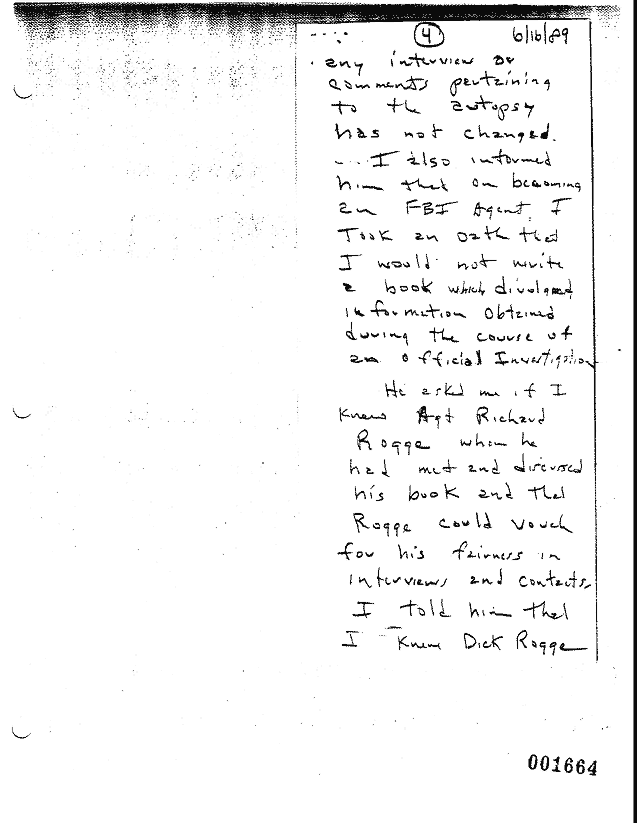 4 6/16/89
any interview or
comments pertaining
to the autopsy
has not changed.
... I also informed
him that on becoming
an FBI Agent, I
Took an oath that
I would not write
a book which divulged
information obtained
during the course of
an official Investigation
He asked me if I
Knew Agt Richard
Rogge whom he
had met and discussed
his book and that
Rogge could vouch
for his fairness in
interviews and contacts.
I told him that
I Knew Dick Rogge
001664